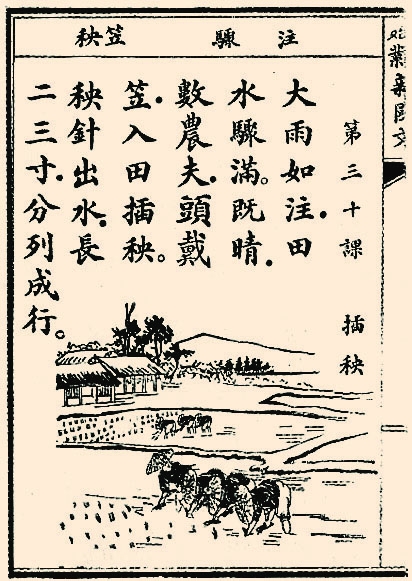 注 驟 笠 秧
第三十課 插秧
大雨如注．田
水驟滿。既晴．
數農夫．頭戴
笠．入田插秧。
秧針出水．長
二三寸．分列成行。